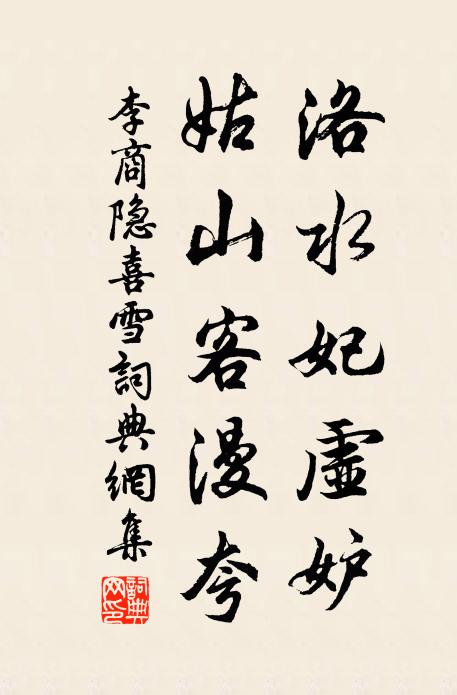 洛水妃虛妒
姑山客漫夸
李商隐喜雪詞典網集
詞典網印